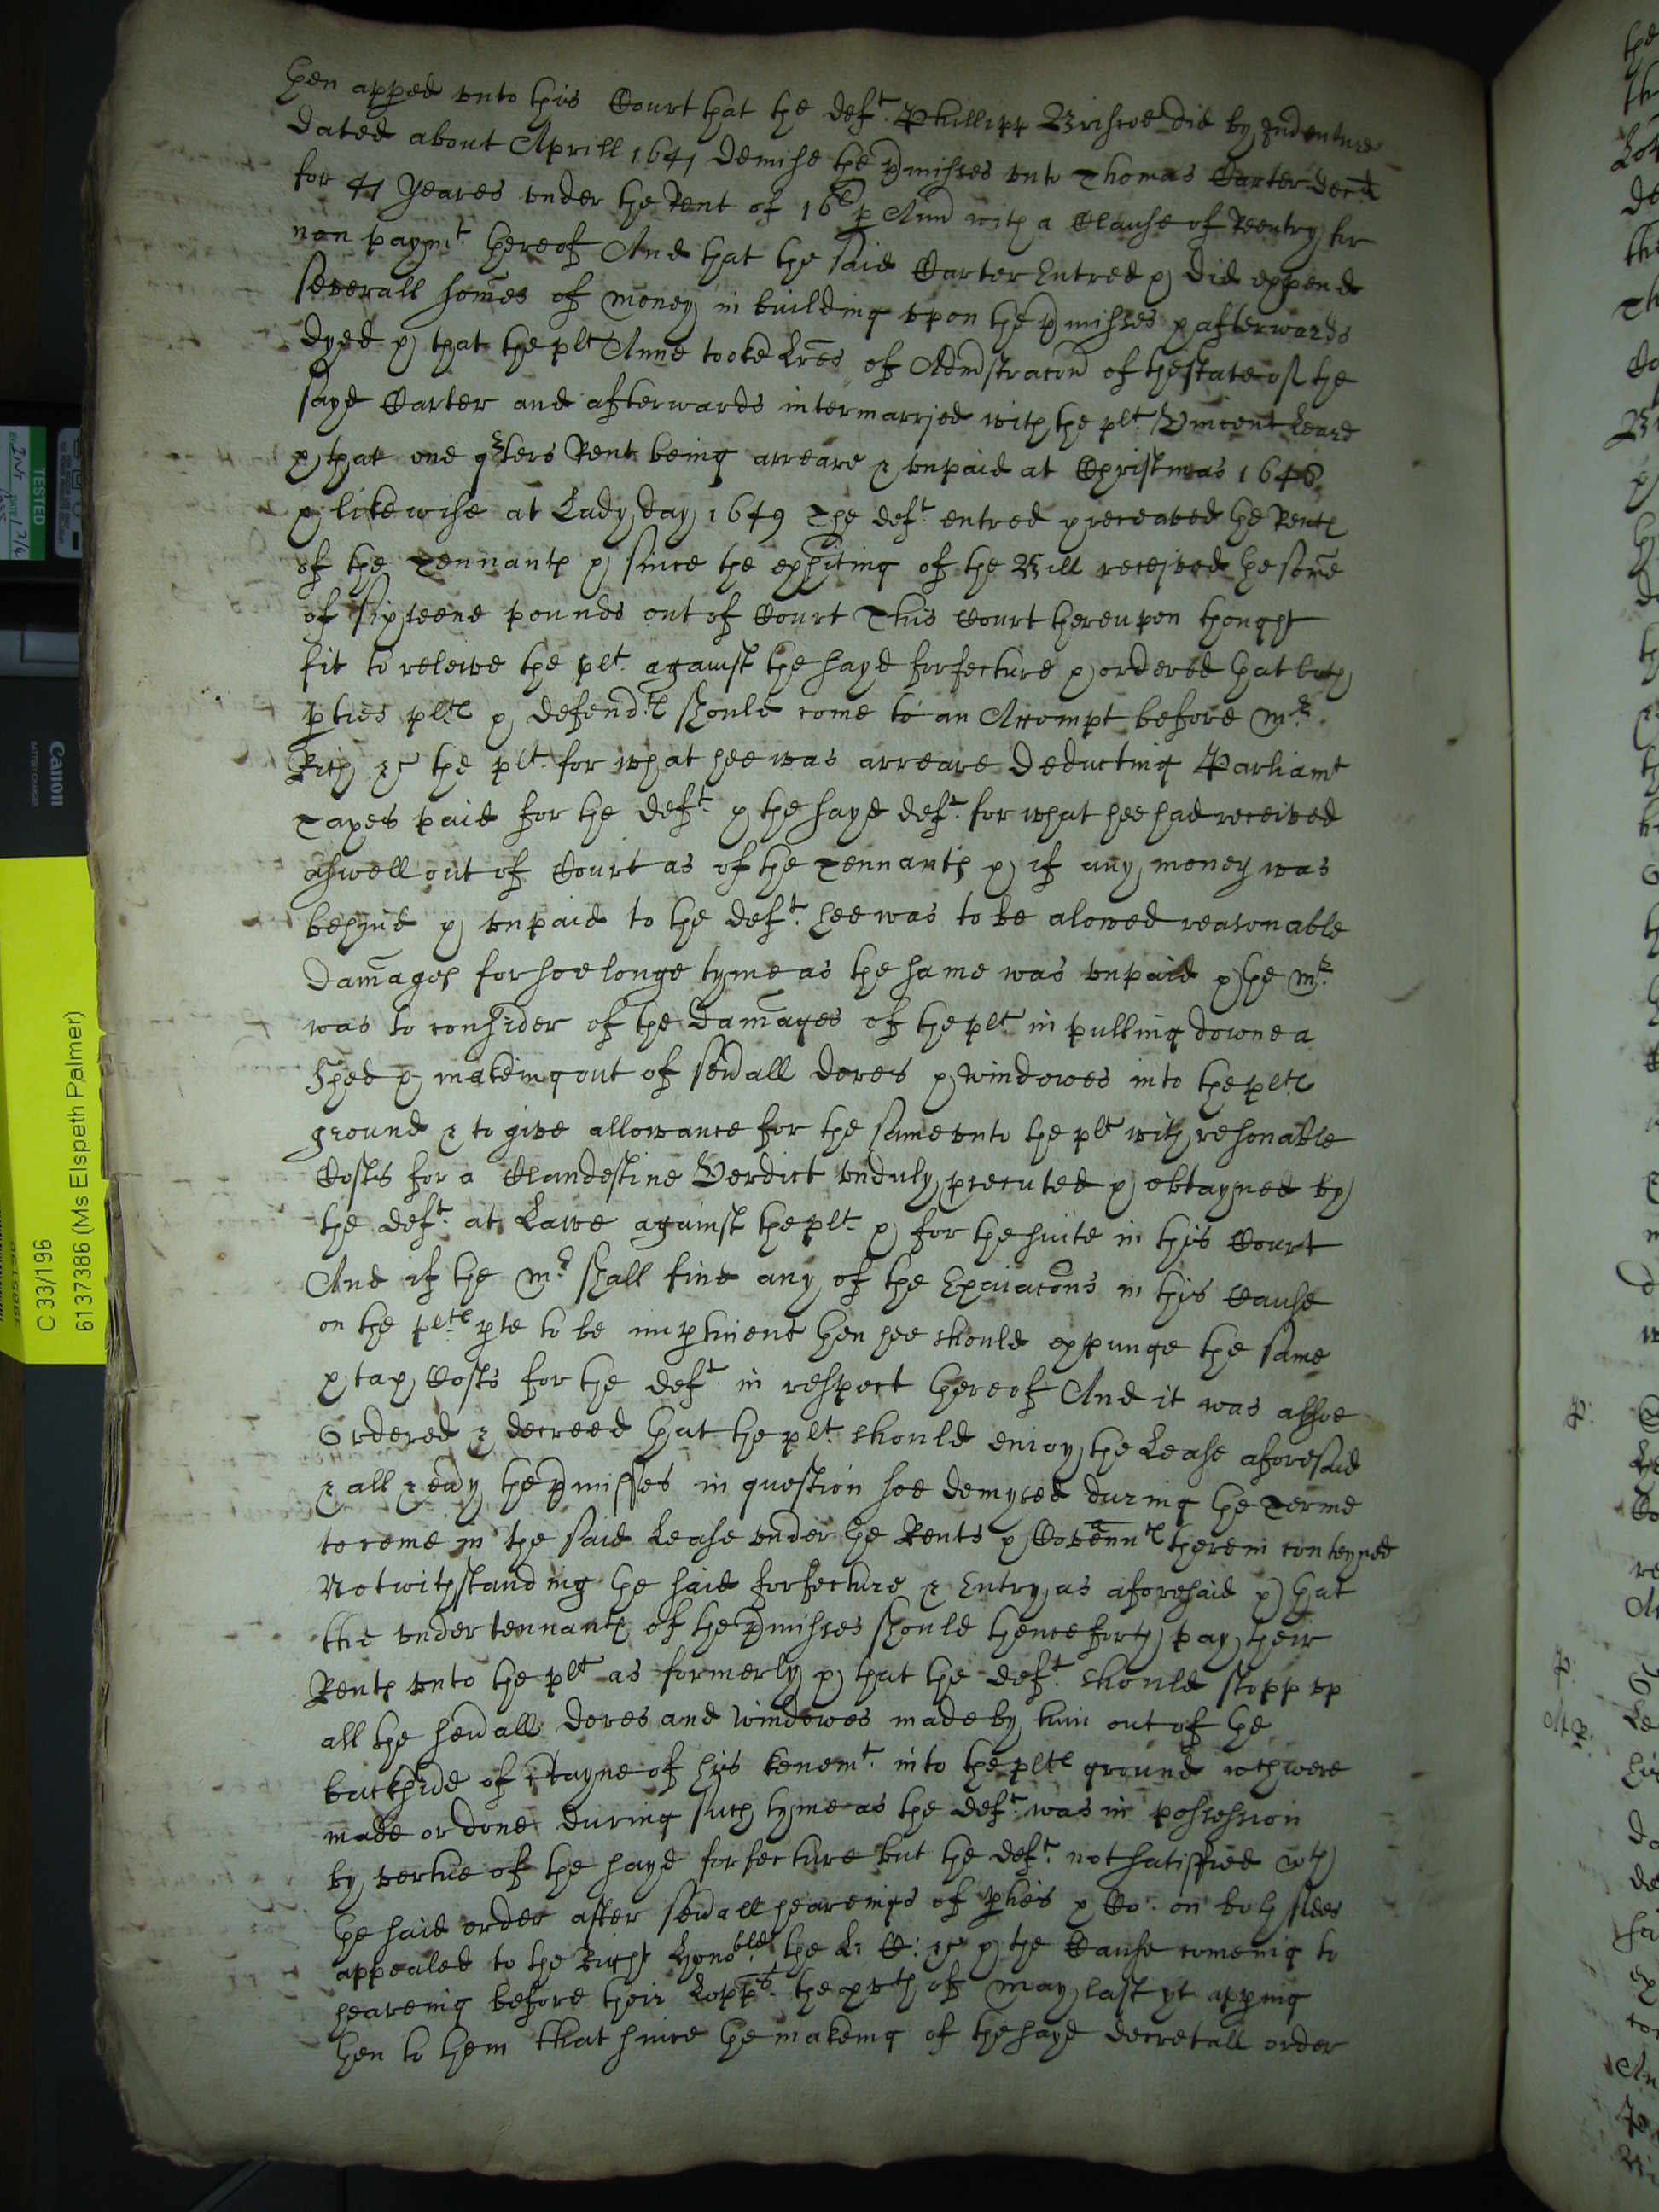 then apped unto this Court that the deft. Phillipp Briscoe did by Indenture
dated about Aprill 1641 demise the pmisses unto Thomas Carter decd
for 41 yeares under the Rent of 16l p Ann with a Clause of Reentry for
non paymt. thereof And that the said Carter Entred & did expend
severall somes of money in building upon the pmisses & afterwards
dyed & that the plt Anne tooke Lres of Admstracon of the state of the
sayd Carter and afterwards intermarried with the plt. Vincent
& that one qters Rent being arreare & unpaid at Christmas 1648
& likewise at Lady day 1649 The deft. entred & receaved the Rents
of the Tennants & since the exhiting of the Bill received the some
of sixteene pounds out of Court This Court thereupon thought
fit to releive the plt. against the sayd forfecture & ordered that both
pties plts & defendts should come to an Accompt before Mr.
Rich &c the plt. for what hee was arreare deducting Parliamt
Taxes paid for the deft. & the sayd deft. for what hee had received
aswell out of Court as of the Tennants & if any money was
behind & unpaid to the deft. hee was to be alowed reasonable
damages for soe longe tyme as the same was unpaid & the Mr.
was to consider of the damages of the plt. in pulling downe a
Shed & makeing out of sevall dores & windowes into the plts
ground & to give allowance for the same unto the plt with resonable
Costs for a Clandestine Verdict unduly psecuted & obtayned by
the deft. at Lawe against the plt & for the suite in this Court
And if the Mr. shall find any of the Exaiacons in this Cause
on the plts pte to be impertinent then hee should expunge the same
& tax Costs for the deft. in respect thereof And it was alsoe
Ordered & decreed that the plt. should enioy the Lease aforesaid
& all the pmisses in question soe demysed during the Terme
to come in the said Lease under the Rents & Covennts therein conteyned
Notwithstanding the said forfecture & Entry as aforesaid & that
the under tennants of the pmisses should thenceforth pay their
Rents unto the plt as formerly & that the deft. should stopp up
all the sevall dores and windowes made by him out of the
backside of his tenemt. into the plts ground wch were
made or done during such tyme as the deft. was in possession
by vertue of the sayd forfecture but the deft. not satisfied wth
the said order after sevall heareings of pties & Co: on both sides
appealed to the Right Honoble. the L: C: &c & the Cause comeing to
heareing before their Lopps. the xvth of May last yt apping
then to them that since the makeing of the sayd decretall order
C 33/196
6137386 (Ms Elspeth Palmer)
TESTED
Canon
BATTERY CHARGER